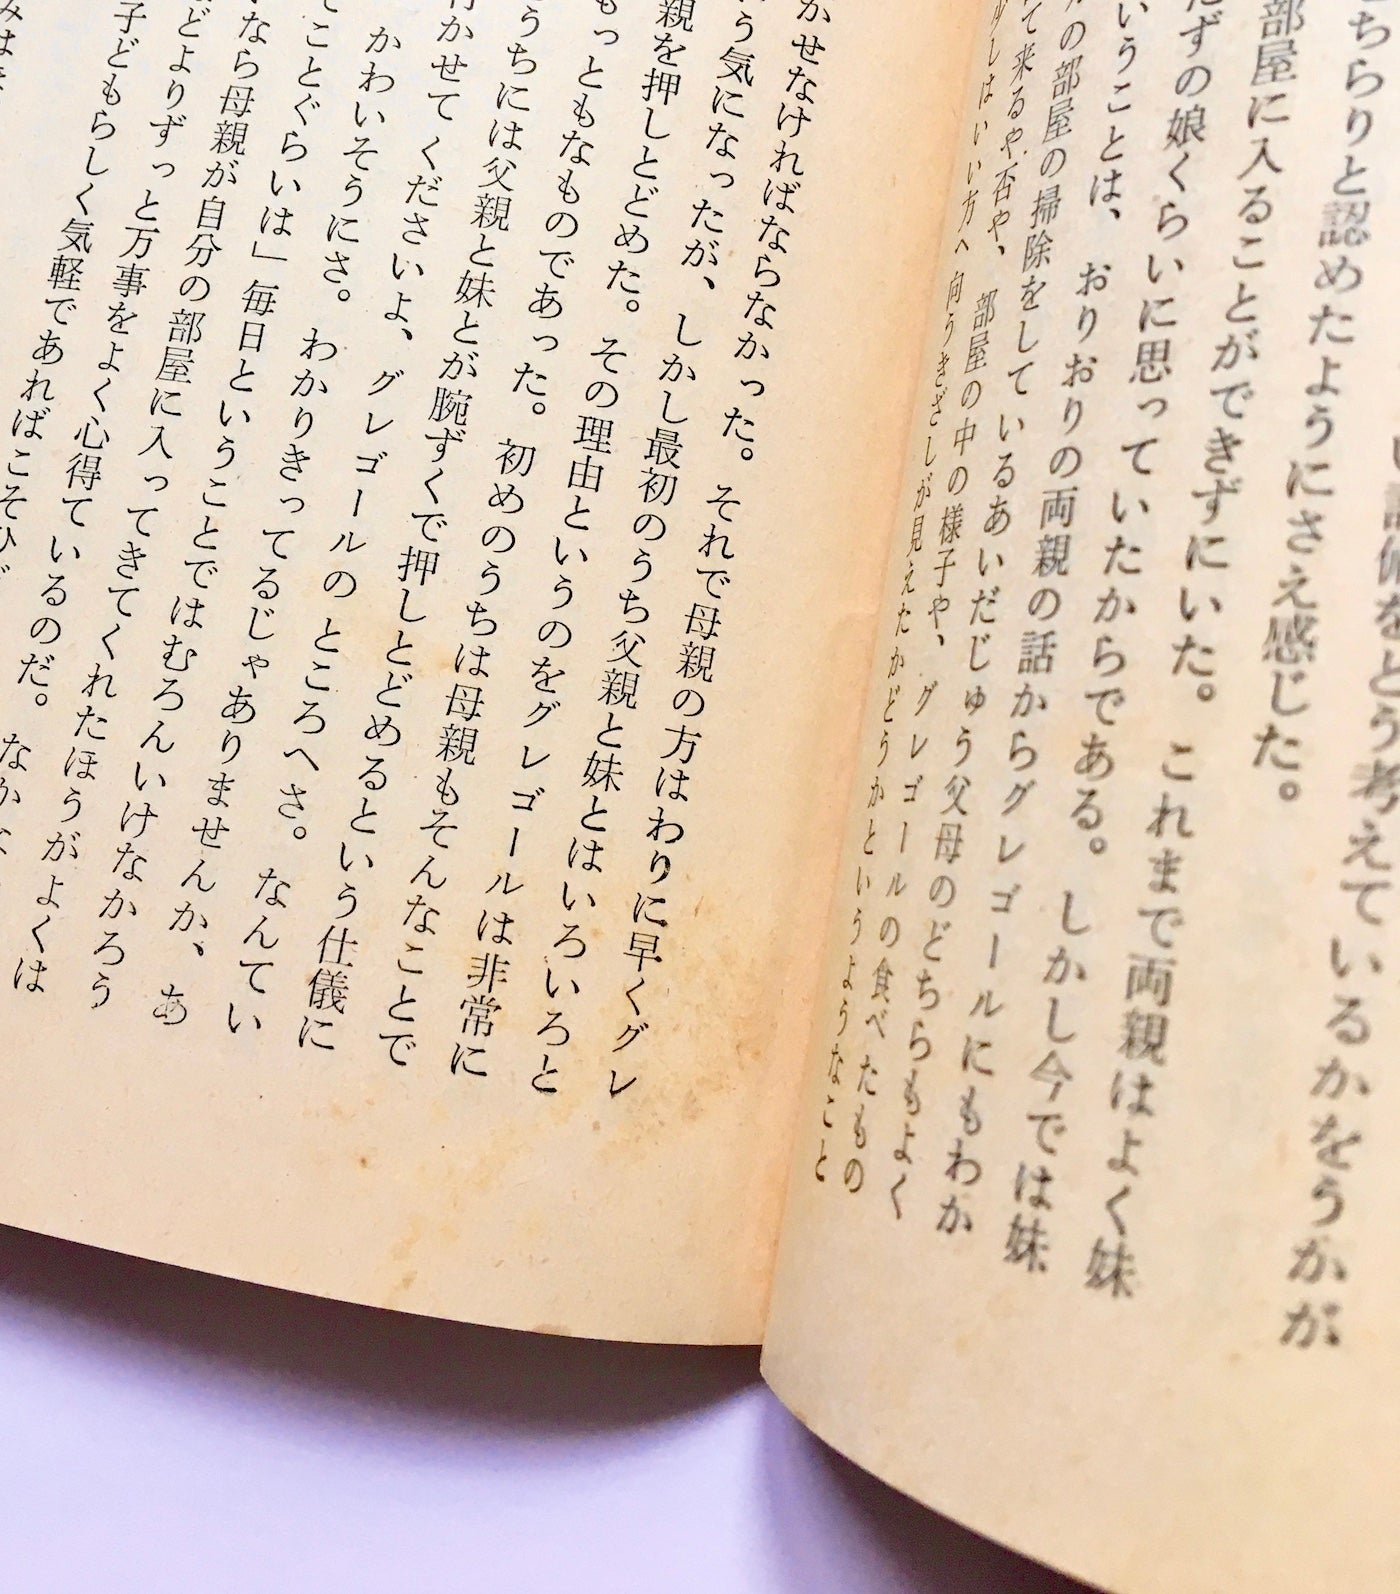 い
考えているかをうかが
ちらりと認めたようにさえ感じた。
部屋に入ることができずにいた。これまで両親はよく妹
たずの娘くらいに思っていたからである。しかし今では妹
いうことは、おりおりの両親の話からグレゴールにもわか
の部屋の掃除をしているあいだじゅう父母のどちらもよく
て来るや否や、部屋の中の様子や、グレゴールの食べたもの
少しはいい方へ向うきざしが見えたかどうかというようなこと
かせなければならなかった。それで母親の方はわりに早くグレ
う気になったが、しかし最初のうち父親と妹とはいろいろと
親を押しとどめた。その理由というのをグレゴールは非常に
もっともなものであった。初めのうちは母親もそんなことで
うちには父親と妹とが腕ずくで押しとどめるという仕儀に
行かせてくださいよ、グレゴールのところへさ。なんてい
かわいそうにさ。わかりきってるじゃありませんか、あ
てことぐらいは」毎日ということではむろんいけなかろう
なら母親が自分の部屋に入ってきてくれたほうがよくは
どよりずっと万事をよく心得ているのだ。
子どもらしく気軽であればこそ
みは